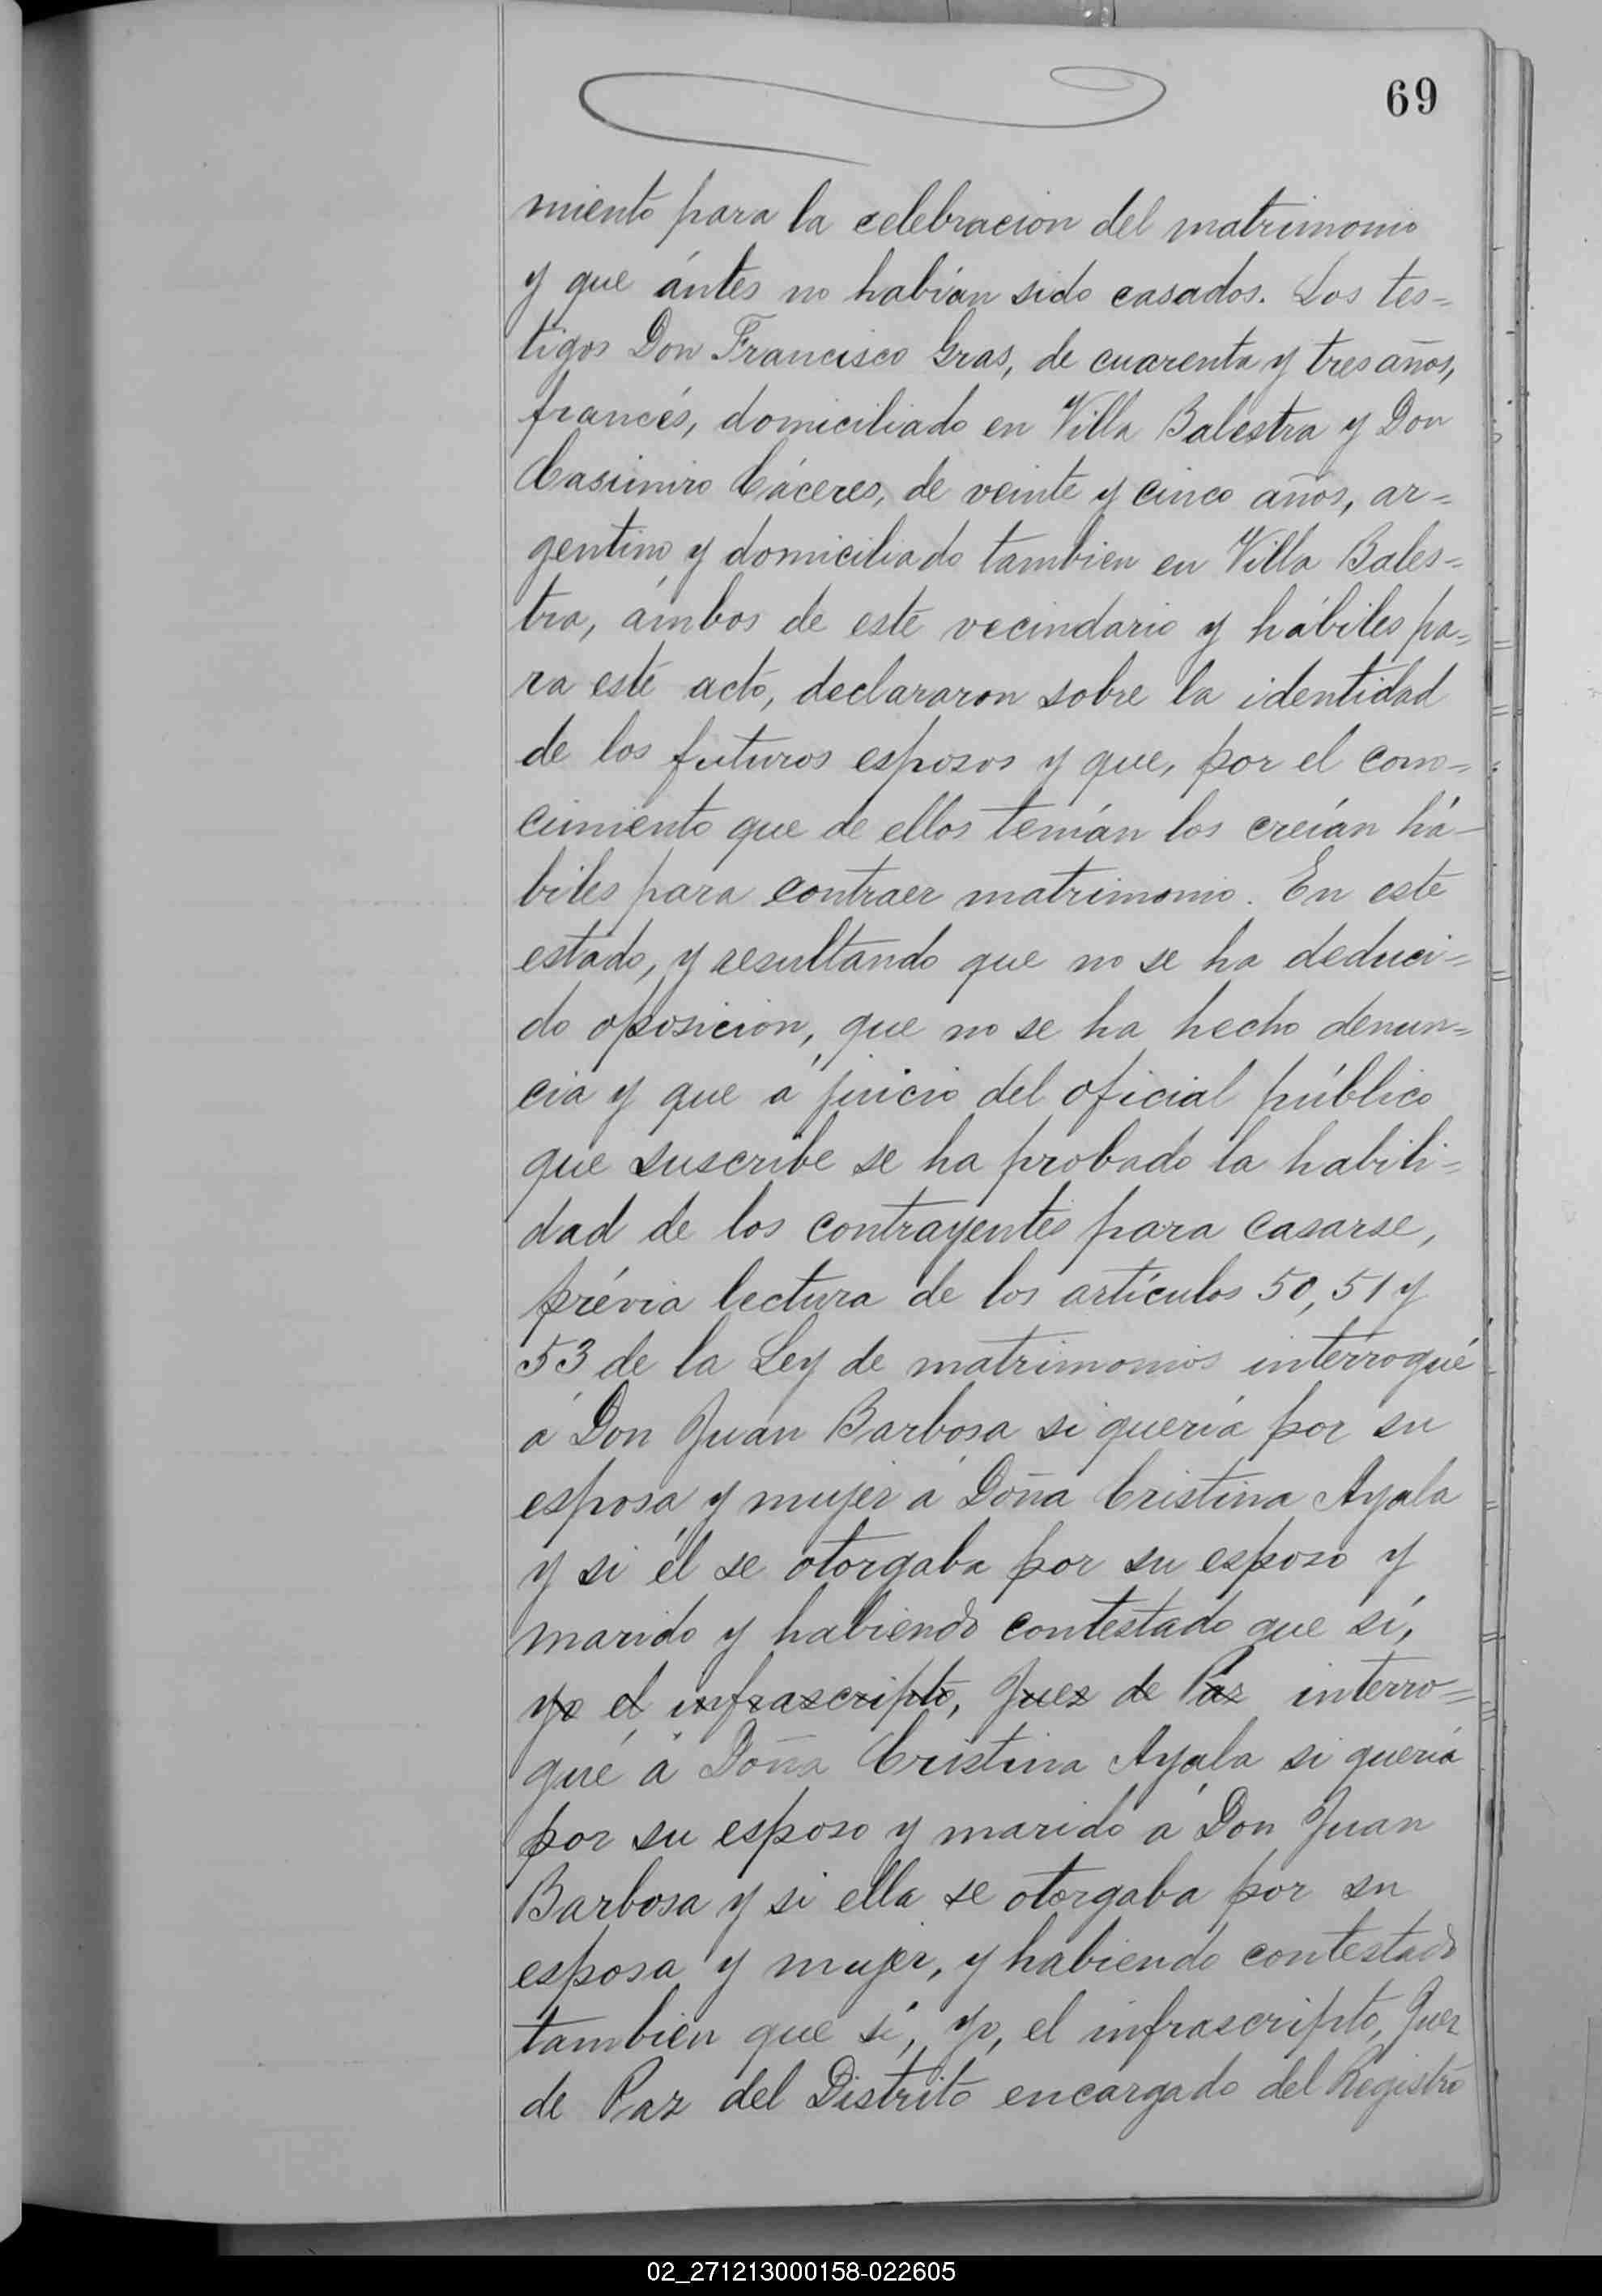 69
miento para la celebracion del matrimonio
y que ántes no habían sido casados. Los tes=
tigos Don Francisco Gras, de cuarenta y tres años,
francés, domiciliado en Villa Balestra y Don
Casimiro Cáceres, de veinte y cinco años, ar=
gentino y domiciliado tambien en Villa Bales=
tra, ámbos de este vecindario y hábiles pa=
ra este acto, declararon sobre la identidad
de los futuros esposos y que, por el cono=
cimiento que de ellos tenían los creían há-
biles para contraer matrimonio. En este
estado, y resultando que no se ha deduci=
do oposicion, que no se ha hecho denun=
cia y que á juicio del oficial público
que suscribe se ha probado la habili=
dad de los contrayentes para casarse,
prévia lectura de los artículos 50, 51 y
53 de la Ley de matrimonios interrogué
á Don Juan Barbosa si quería por su
esposa y mujer á Doña Cristina Ayala
y si él se otorgaba por su esposo y
marido y habiendo contestado que sí,
yo el infrascripto, Juez de Paz interro=
gué á Doña Cristina Ayala si quería
por su esposo y marido á Don Juan
Barbosa y si ella se otorgaba por su
esposa y mujer, y habiendo contestado
tambien que sí, yo, el infrascripto, Juez
de Paz del Distrito encargado del Registro
02_271213000158-022605